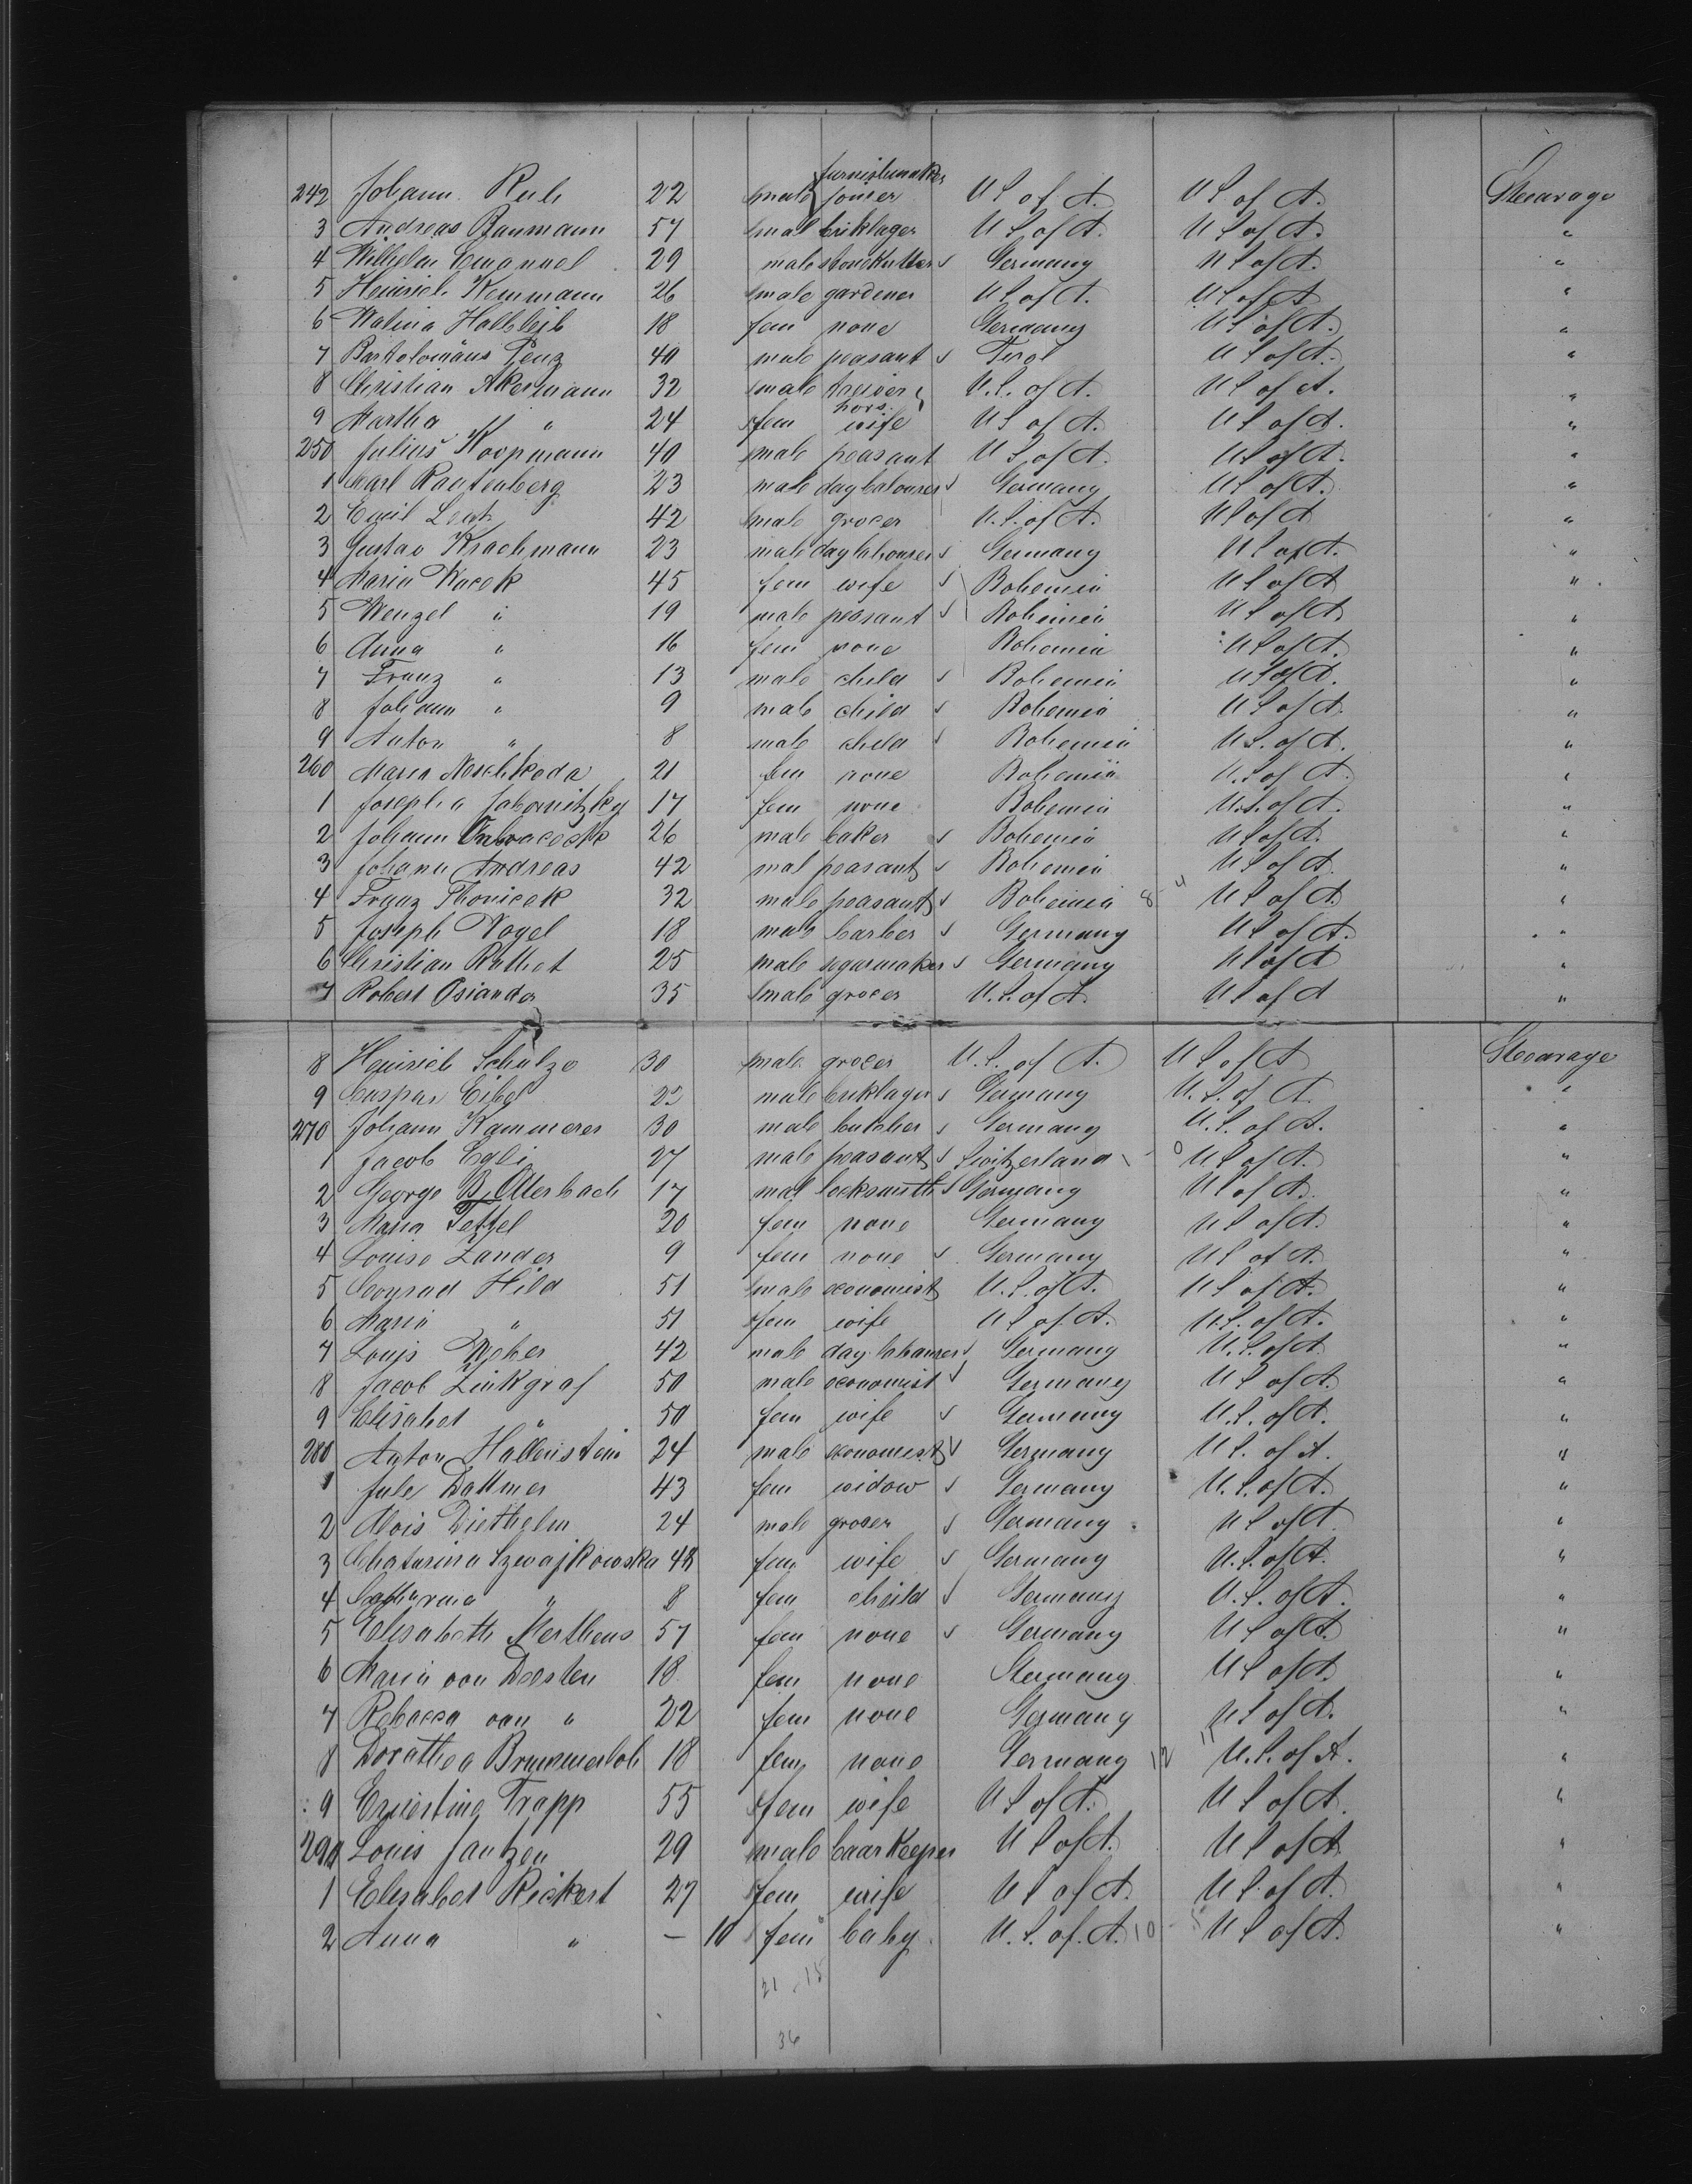 furnishmaker
242 Johann Rub 22 male joiner U S of A. U S of A. Stearage
3 Andreas Baumann 57 mal briklager U S of A. U S of A. "
4 Wilhelm Emanuel 29 male stonekutter s Germany U S of A. "
5 Heinrich Kemmann 26 male gardener U S of A. U S of A "
6 Halbleib 18 fem none Germany U S of A. "
7 Bartolomäus Penz 40 male peasant s Tirol U S of A. "
8 Christian Akermann 32 male U.S. of A. U S of A. "
9 Martha " 24 fem wife U S of A. U S of A. "
250 Julius Koopmann 40 male peasant U S of A. U S of A. "
1 Carl Rautenberg 23 male daylabourer s Germany U S of A. "
2 Emil 42 male grocer U.S. of A. U S of A "
3 Gustav Krachmann 23 male daylabourer s Germany U S of A. "
4 Maria Wacek 45 fem wife s Bohemia U S of A "
5 Wenzel " 19 male peasant s Bohemia U S of A "
6 Anna " 16 fem none Bohemia U S of A. "
7 Franz " 13 male child s Bohemia U S of A. "
8 Johann " 9 male child s Bohemia U S of A. "
9 Anton " 8 male child s Bohemia U.S. of A. "
260 Maria Neschkoda 21 fem none Bohemia U.S. of A. "
1 Josepha Jabornitzky 17 fem none Bohemia U.S. of A. "
2 Johann 26 male baker s Bohemia U S of A. "
3 Johann Andreas 42 mal peasant s Bohemia U S of A. "
4 Franz Thonicek 32 male peasant s Bohemia 8 4 U S of A. "
5 Joseph Vogel 18 male barber s Germany U S of A. "
6 Christian Rathet 25 male segarmaker s Germany U S of A "
7 Robert Osiander 35 male grocer U.S. of A. U S of A "
8 Heinrich Schulze 30 male grocer U.S. of A. U S of A Stearage
9 Caspar Eibel male briklager s Germany U.S. of A. "
270 Johann Kammerer 30 male butcher s Germany U.S. of A. "
1 Jacob Egli 27 male peasant s Switzerland - 0 U S of A. "
2 George B. Otterbach 17 mal locksmith s Germany U S of A. "
3 Maria Tetzel 20 fem none Germany U S of A. "
4 Louise Zander 9 fem none s Germany U S of A. "
5 Conrad Hild 51 male economist U.S. of A. U S of A. "
6 Maria " 51 fem wife U S of A. U.S. of A. "
7 Louis Weber 42 male daylabourer s Germany U.S. of A. "
8 Jacob Zinkgraf 50 male economist s Germany U S of A. "
9 Elisabet " 50 fem wife s Germany U.S. of A. "
280 Anton Hallenstein 24 male economist s Germany U S. of A. "
1 Jule Dattmer 43 fem widow s Germany U.S. of A. "
2 Alois Diethelm 24 male grocer s Germany U S of A "
3 Chatarina Szwajkowska 48 fem wife s Germany U.S. of A. "
4 Catharina " 8 fem cheild s Germany U.S. of A. "
5 Elisabeth Merthens 57 fem none s Germany U S of A. "
6 Maria von Deesten 18 fem none Germany U S of A. "
7 Rebacca von " 22 fem none Germany U S of A. "
8 Dorathea Brummerloh 18 fem none Germany 12 11 U.S. of A. "
9 Ernestine Trapp 55 fem wife U S of A. U S of A. "
290 Louis Jantzen 29 male baarkeeper U S of A. U S of A "
1 Elisabet Rickert 27 fem wife U S of A. U S of A. "
2 Anna " — 10 fem baby U.S. of A. 10 - 5 U S of A. "
21 15
36